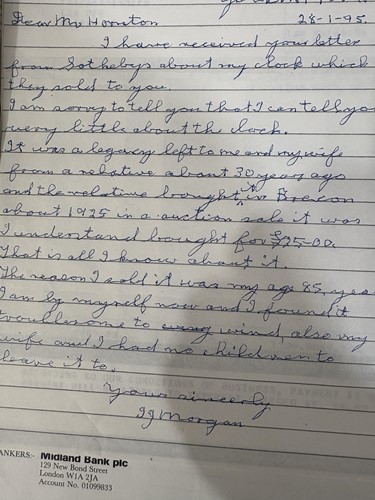 Dear Mr Hornton 28-1-95.
I have received your letter
from Sothebys about my clock which
they sold to you.
I am sorry to tell you that I can tell you
very little about the clock.
It was a legacy left to me and my wife
from a relative about 30 years ago
and the relative brought it in Brecon
about 1925 in a auction sale it was
I understand brought for £25-00.
That is all I know about it.
The reason I sold it was my age 85, year
I am by myself now and I found it
troublesome to wind, also my
wife and I had no children to
leave it to.
Yours sincerly
Morgan
ANKERS:- Midland Bank plc
129 New Bond Street
London W1A 2JA
Account No. 01099833